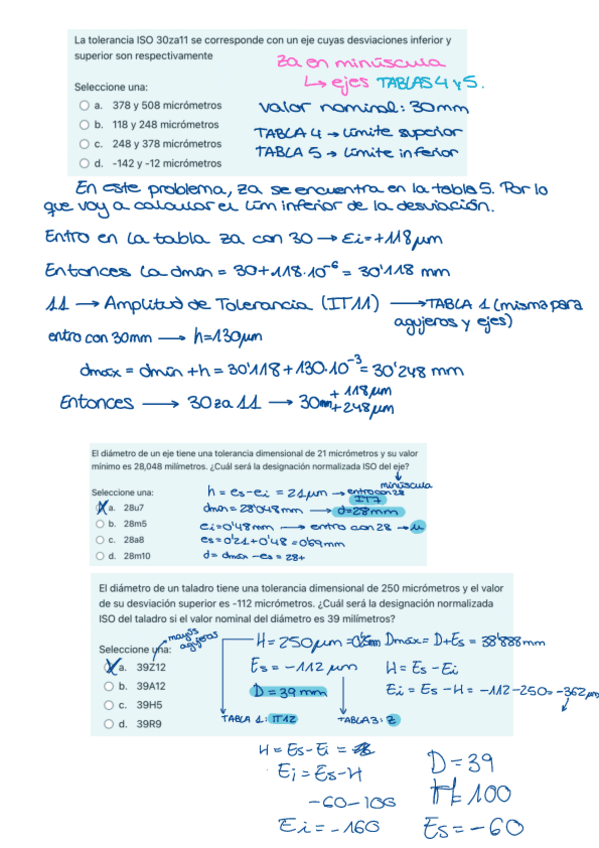 La tolerancia ISO 30za11 se corresponde con un eje cuyas desviaciones inferior y
superior son respectivamente
za en minúscula
↳ ejes TABLAS 4 y 5.
Seleccione una:
a. 378 y 508 micrómetros
valor nominal: 30mm
b. 118 y 248 micrómetros
TABLA 4 → Límite superior
c. 248 y 378 micrómetros
TABLA 5 → Límite inferior
d. -142 y -12 micrómetros
En este problema, za se encuentra en la tabla 5. Por lo
que voy a calcular el lím inferior de la desviación.
Entro en la tabla za con 30 → Ei=+118μm
Entonces la dmín = 30+118·10⁻⁶ = 30'118 mm
11 → Amplitud de Tolerancia (IT11) → TABLA 1 (misma para
agujeros y ejes)
entro con 30mm → h=130μm
dmáx = dmín + h = 30'118 + 130·10⁻³ = 30'248 mm
Entonces → 30za11 → 30mm +118μm
+248μm
El diámetro de un eje tiene una tolerancia dimensional de 21 micrómetros y su valor
mínimo es 28,048 milímetros. ¿Cuál será la designación normalizada ISO del eje?
minúscula
Seleccione una:
h = es-ei = 21μm → entro con 28
IT7
a. 28u7
dmín = 28'048mm → d=28mm
b. 28m5
ei=0'48mm → entro con 28 → u
c. 28a8
es = 0'21+0'48 = 0'69mm
d. 28m10
d = dmáx - es = 28+
El diámetro de un taladro tiene una tolerancia dimensional de 250 micrómetros y el valor
de su desviación superior es -112 micrómetros. ¿Cuál será la designación normalizada
ISO del taladro si el valor nominal del diámetro es 39 milímetros?
mayús
agujeros
Seleccione una:
H = 250μm = Dmáx = D+Es = 38'888mm
a. 39Z12
Es = -112 μm
H = Es - Ei
b. 39A12
D = 39 mm
Ei = Es - H = -112-250 = -362μm
c. 39H5
d. 39R9
TABLA 1: IT12
TABLA 3: Z
H = Es - Ei =
Ei = Es - H
-60-100
Ei = -160
D = 39
H = 100
Es = -60